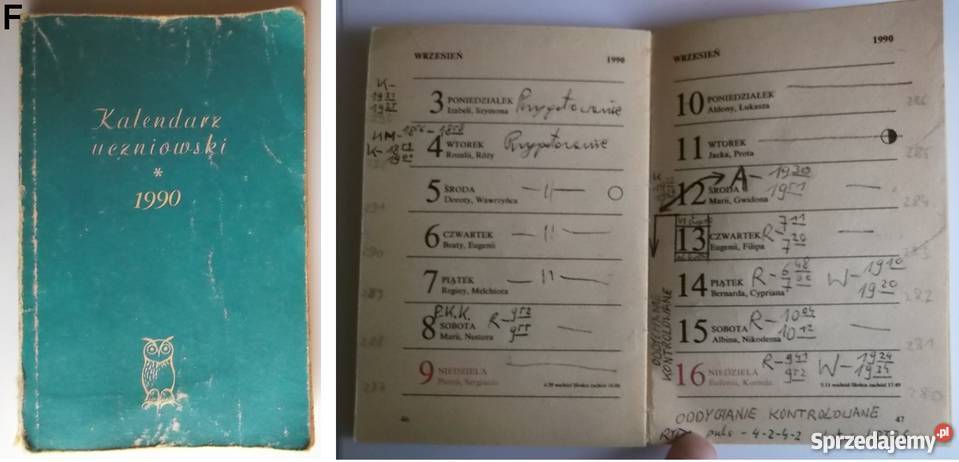 F
Kalendarz
uczniowski
*
1990
WRZESIEŃ 1990
3 PONIEDZIAŁEK
Izabeli, Szymona
Przygotowanie
4 WTOREK
Rozalii, Róży
Przygotowanie
5 ŚRODA
Doroty, Wawrzyńca
— 11 —
6 CZWARTEK
Beaty, Eugenii
— 11 —
7 PIĄTEK
Reginy, Melchiora
— 11 —
P.K.K.
8 SOBOTA
Marii, Nestora
R- 9 52
9 55
9 NIEDZIELA
46
WRZESIEŃ 1990
10 PONIEDZIAŁEK
Aldony, Łukasza
286
11 WTOREK
Jacka, Prota
285
12 ŚRODA
Marii, Gwidona
A- 19 20
19 51
284
13 CZWARTEK
Eugenii, Filipa
R- 7 11
7 20
14 PIĄTEK
Bernarda, Cypriana
R- 6 48
W- 19 10
19 20
282
15 SOBOTA
Albina, Nikodema
R- 10 04
10 12
281
16 NIEDZIELA
R- 9 41
9 52
W- 19 24
19 34
280
ODDYCHANIE
KONTROLOWANE
ODDYCHANIE KONTROLOWANE
47
puls - 4-2-4-2
Sprzedajemy.pl